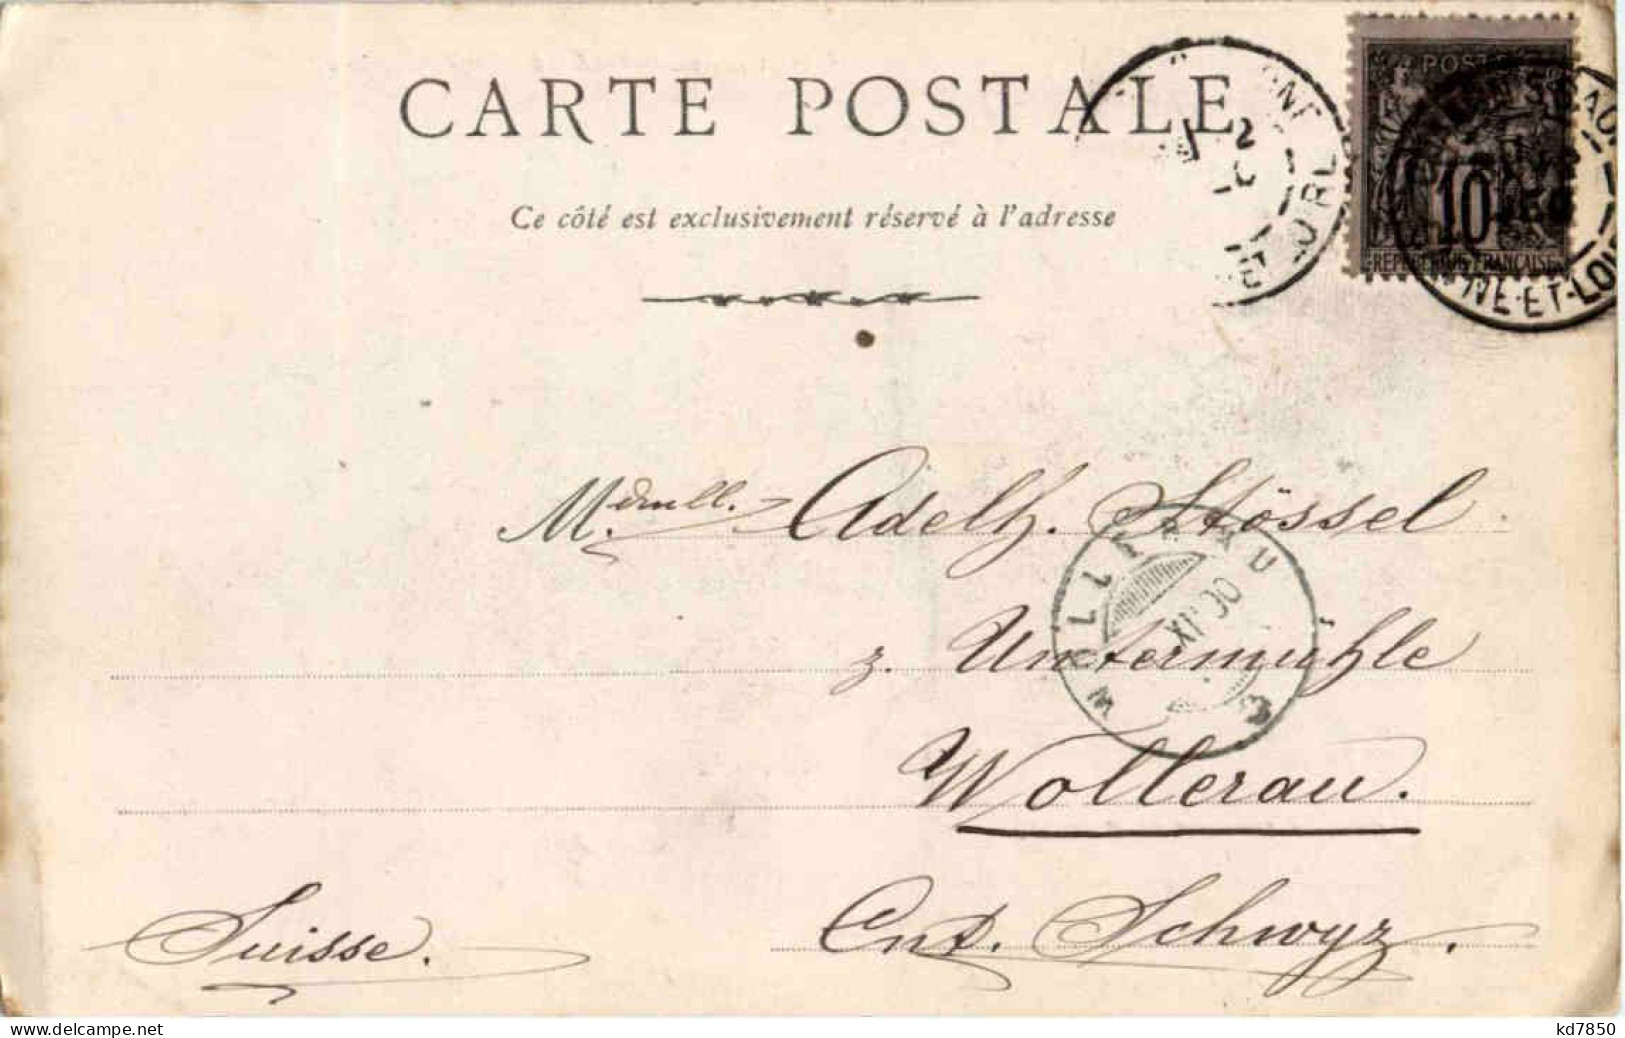 CARTE POSTALE
Ce côté est exclusivement réservé à l'adresse
POSTES
10
REPUBLIQUE FRANÇAISE
NE-ET-LOI
ET LOIRE
M. Adelh. Stössel
z. Untermühle
Wollerau.
Cnt. Schwyz.
Suisse.
WOLLERAU
IX 00
www.delcampe.net
kd7850